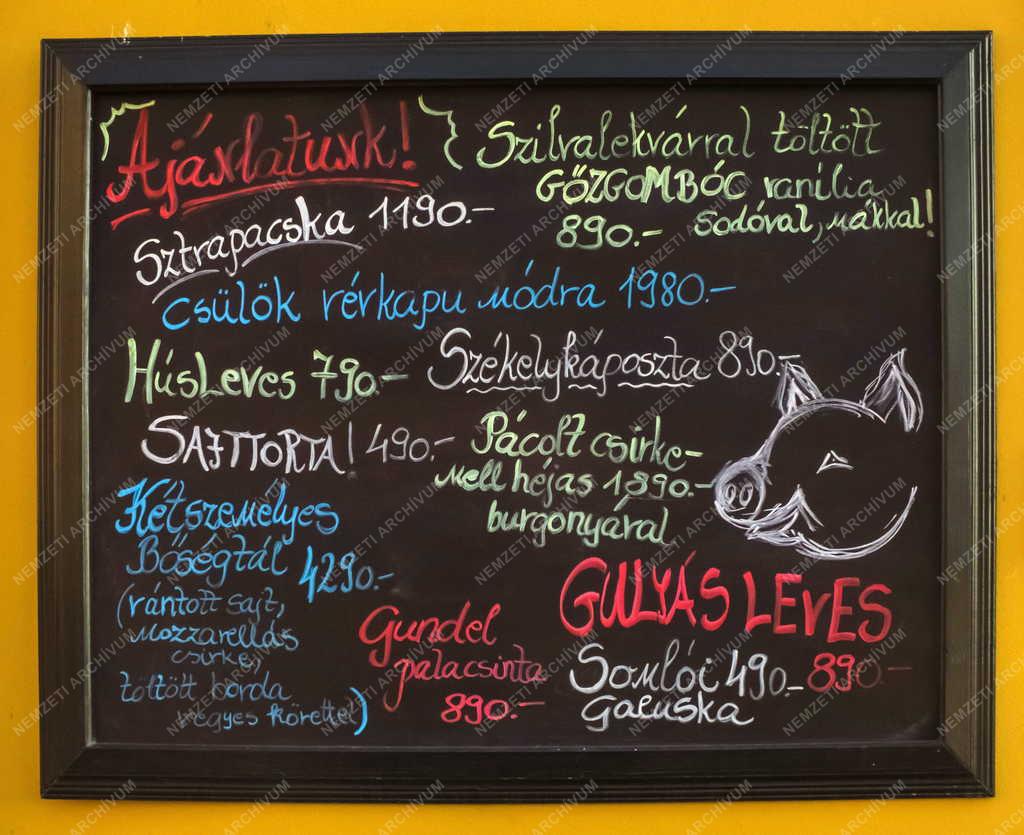 Ajánlatunk!
Sztrapacska 1190.-
Szilvalekvárral töltött
GŐZGOMBÓC vanília
890.- sodóval, mákkal!
csülök vévkapu módra 1980.-
HúsLeves 790.-
Székelykáposzta 890.-
SAJTTORTA! 490.-
Pácolt csirke-
mell héjas 1890.-
burgonyával
Kétszemélyes
Bőségtál 4290.-
(rántott sajt,
mozzarellás
csirke,
töltött borda
vegyes körettel)
Gundel
palacsinta
890.-
GULYÁS LEVES
890.-
Somlói 490.-
Galuska
NEMZETI ARCHÍVUM